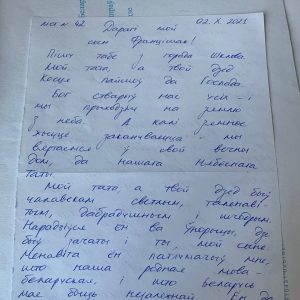 Ліст № 42 02.X.2021
Дарагі мой
сын Францішак!
Пішу табе з горада Шклова.
Мой тата, а твой дзед
Косця пайшоў да Госпада.
Бог стварыў нас усіх – і
мы прыходзім на зямлю
з неба. А калі зямное
жыццё заканчваецца – мы
вяртаемся ў свой вечны
дом, да нашага Нябеснага
Таты.
Мой тата, а твой дзед быў
чалавекам светлым, таленаві-
тым, дабрадушным і шчырым.
Нарадзіўся ён ва Ўкраіне, дзе
быў зачаты і ты, мой сыне.
Менавіта ён патлумачыў мне,
што наша родная мова –
беларуская, і што Беларусь
мае быць незалежнай. Ён да